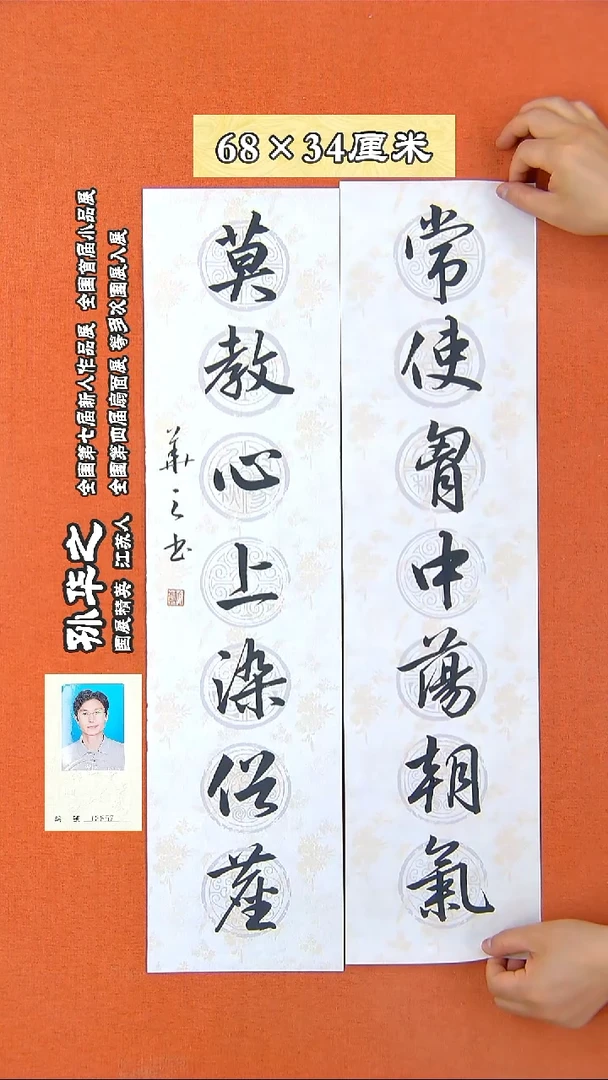 68×34厘米
常使胷中蕩朝氣
莫教心上染俗塵
華之书
孙华之
全国第七届新人作品展 全国首届小品展
国展精英 江苏人 全国第四届扇面展 等多次国展入展